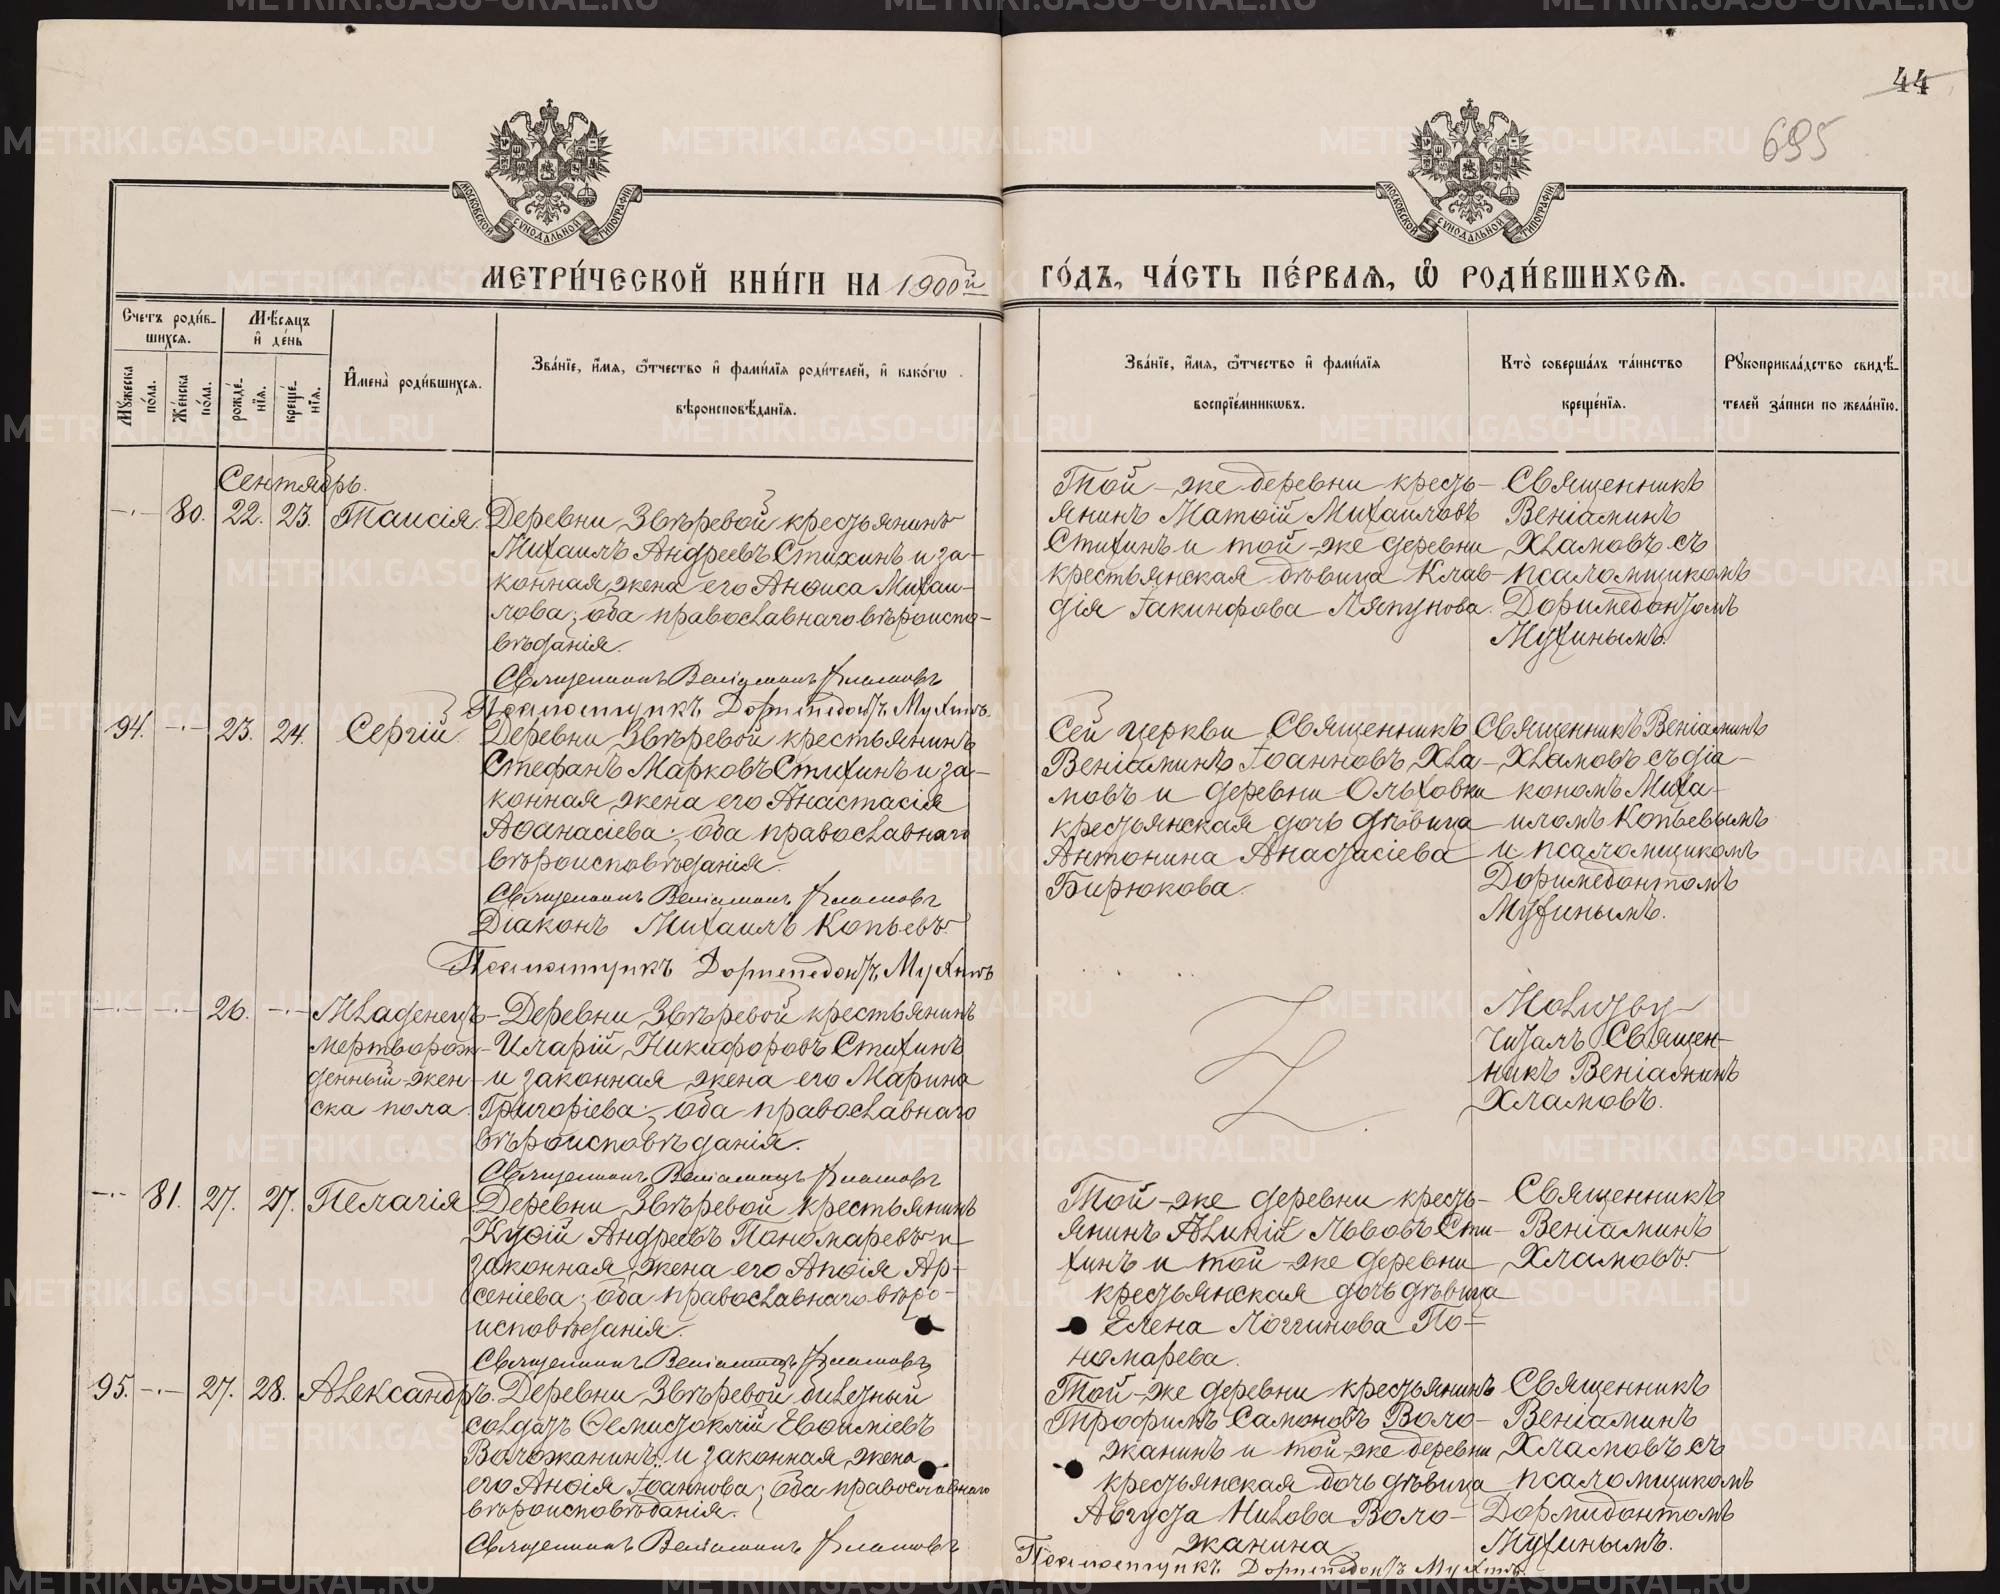 44
695
МОСКОВСКОЙ СѴНОДАЛЬНОЙ ТИПОГРАФІИ
МОСКОВСКОЙ СѴНОДАЛЬНОЙ ТИПОГРАФІИ
МЕТРИ́ЧЕСКОЙ КНИ́ГИ НА 1900й ГО́ДЪ, ЧА́СТЬ ПЕ́РВАЯ, Ѡ҆ РОДИ́ВШИХСЯ.
Счетъ роди́вшихся.
Мꙋ́жеска по́ла.
Же́нска по́ла.
Мѣ́сяцъ и҆ де́нь
рожде́нїя.
креще́нїя.
И҆мена̀ роди́вшихся.
Зва́нїе, и҆́мя, ѻ҆́тчество и҆ фами́лїя роди́телей, и҆ како́гѡ вѣроисповѣ́данїя.
Зва́нїе, и҆́мя, ѻ҆́тчество и҆ фами́лїя воспрїе́мникѡвъ.
Кто̀ соверша́лъ та́инство креще́нїя.
Рꙋкоприкла́дство свидѣ́телей за́писи по жела́нїю.
Сентябрь.
-·- 80. 22. 23. Таисія.
Деревни Звѣревой крестьянинъ
Михаилъ Андреевъ Стихинъ и за-
конная жена его Анѳиса Михаи-
лова; оба православнаго вѣроиспо-
вѣданія.
Священникъ Веніаминъ Хламовъ
Псаломщикъ Доримедонтъ Мухинъ.
Той-же деревни кресть-
янинъ Матѳій Михаиловъ
Стихинъ и той-же деревни
крестьянская дѣвица Клав-
дія Іакинфова Ляпунова.
Священникъ
Веніаминъ
Хламовъ съ
псаломщикомъ
Доримедонтомъ
Мухинымъ.
94. -·- 23. 24. Сергій.
Деревни Звѣревой крестьянинъ
Стефанъ Марковъ Стихинъ и за-
конная жена его Анастасія
Аѳанасіева; оба православнаго
вѣроисповѣданія.
Священникъ Веніаминъ Хламовъ
Діаконъ Михаилъ Копьевъ.
Псаломщикъ Доримедонтъ Мухинъ
Сей церкви Священникъ
Веніаминъ Іоанновъ Хла-
мовъ и деревни Ольховки
крестьянская дочь дѣвица
Антонина Анастасіева
Бирюкова.
Священникъ Веніаминъ
Хламовъ съ діа-
кономъ Миха-
иломъ Копьевымъ
и псаломщикомъ
Доримедонтомъ
Мухинымъ.
-·- -·- 26. -·- Младенецъ
мертворож-
денный жен-
ска пола.
Деревни Звѣревой крестьянинъ
Иларій Никифоровъ Стихинъ
и законная жена его Марина
Григоріева; оба православнаго
вѣроисповѣданія.
Священникъ Веніаминъ Хламовъ
Молитву
читалъ Священ-
никъ Веніаминъ
Хламовъ.
-·- 81. 27. 27. Пелагія
Деревни Звѣревой крестьянинъ
Андреевъ Пономаревъ и
законная жена его Анѳія Ар-
сеніева; оба православнаго вѣро-
исповѣданія.
Священникъ Веніаминъ Хламовъ
Той-же деревни кресть-
янинъ Алипій Львовъ Сти-
хинъ и той-же деревни
крестьянская дочь дѣвица
Елена Логгинова По-
номарева.
Священникъ
Веніаминъ
Хламовъ.
95. -·- 27. 28. Александръ.
Деревни Звѣревой билетный
солдатъ Ѳемистоклій Евѳиміевъ
Воложанинъ и законная жена
его Анѳія Іоаннова; оба православнаго
вѣроисповѣданія.
Священникъ Веніаминъ Хламовъ
Той-же деревни крестьянинъ
Трофимъ Самоновъ Воло-
жанинъ и той-же деревни
крестьянская дочь дѣвица
Августа Нилова Воло-
жанина
Псаломщикъ Доримедонтъ Мухинъ.
Священникъ
Веніаминъ
Хламовъ съ
псаломщикомъ
Дормидонтомъ
Мухинымъ.
METRIKI.GASO-URAL.RU